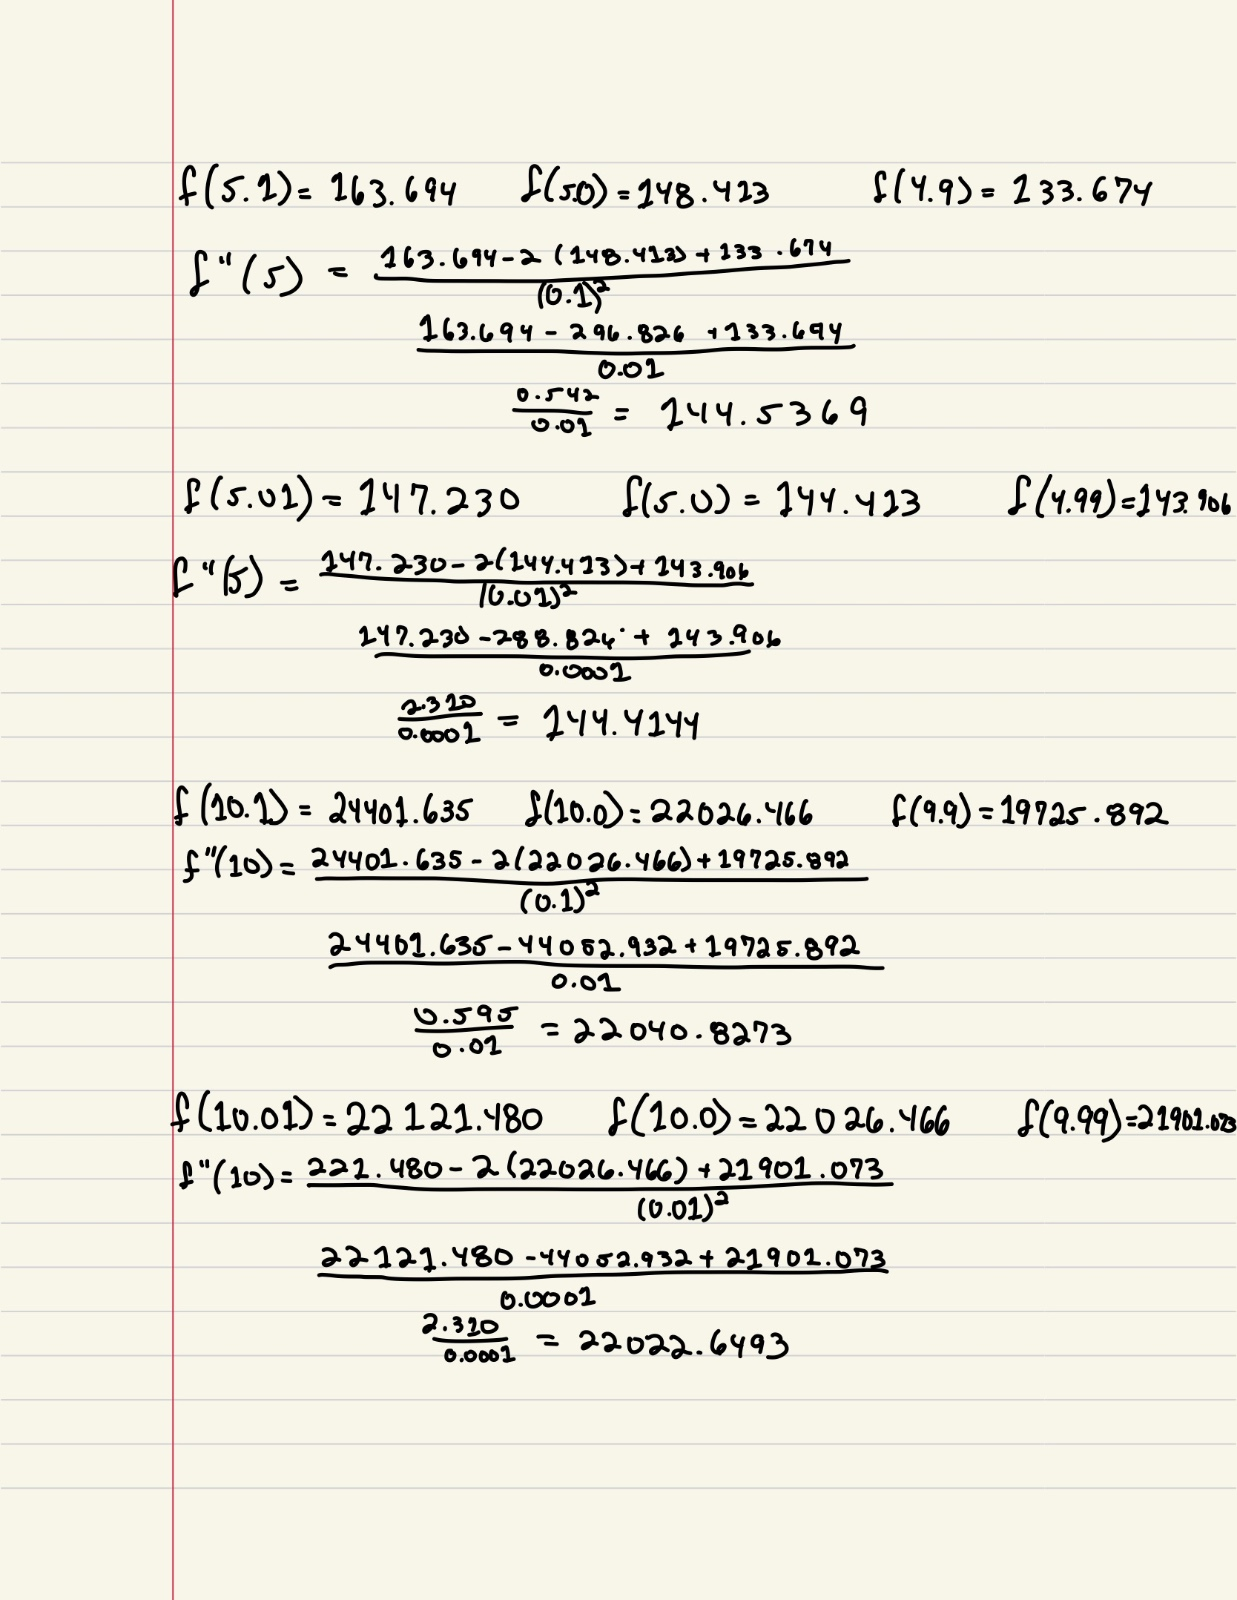 f(5.1) = 163.694 f(5.0) = 148.413 f(4.9) = 133.674
f"(5) = 163.694 - 2 (148.413) + 133.674
(0.1)²
163.694 - 296.826 + 133.674
0.01
0.542
0.01 = 144.5369
f(5.01) = 147.230 f(5.0) = 144.413 f(4.99) = 143.906
f"(5) = 147.230 - 2(144.413) + 143.906
(0.01)²
147.230 - 288.826 + 143.906
0.0001
2.310
0.0001 = 144.4144
f(10.1) = 24401.635 f(10.0) = 22026.466 f(9.9) = 19725.892
f"(10) = 24401.635 - 2(22026.466) + 19725.892
(0.1)²
24401.635 - 44052.932 + 19725.892
0.01
0.595
0.01 = 22040.8273
f(10.01) = 22121.480 f(10.0) = 22026.466 f(9.99) = 21901.073
f"(10) = 221.480 - 2(22026.466) + 21901.073
(0.01)²
22121.480 - 44052.932 + 21901.073
0.0001
2.310
0.0001 = 22022.6493